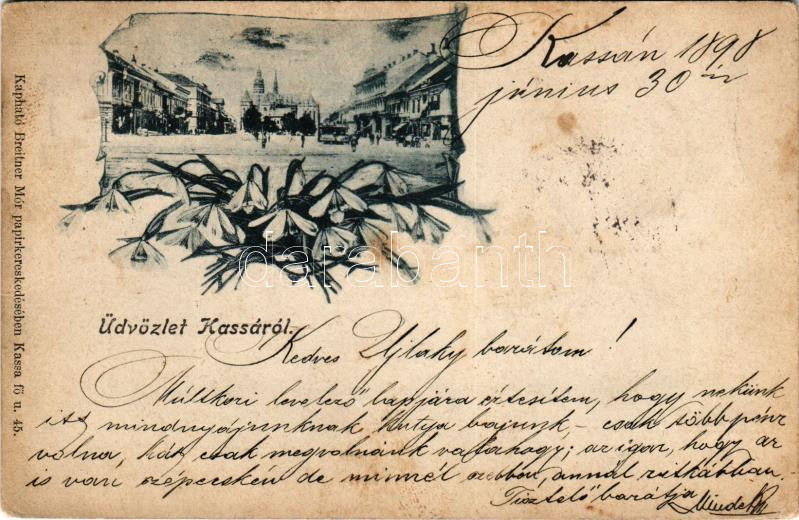 Kassán 1898
június 30-án
Kapható Breitner Mór papirkereskedésében Kassa fő u. 45.
darabanth
Üdvözlet Kassáról.
Kedves Ujlaky barátom!
Múltkori levelező lapjára értesítem, hogy nekünk
itt mindnyájunknak kutya bajunk – csak több pénz
volna, hát csak megvolnánk valahogy; az igaz, hogy az
is van szépecskén de minnél szebben, annál ritkábban.
Tisztelő barátja